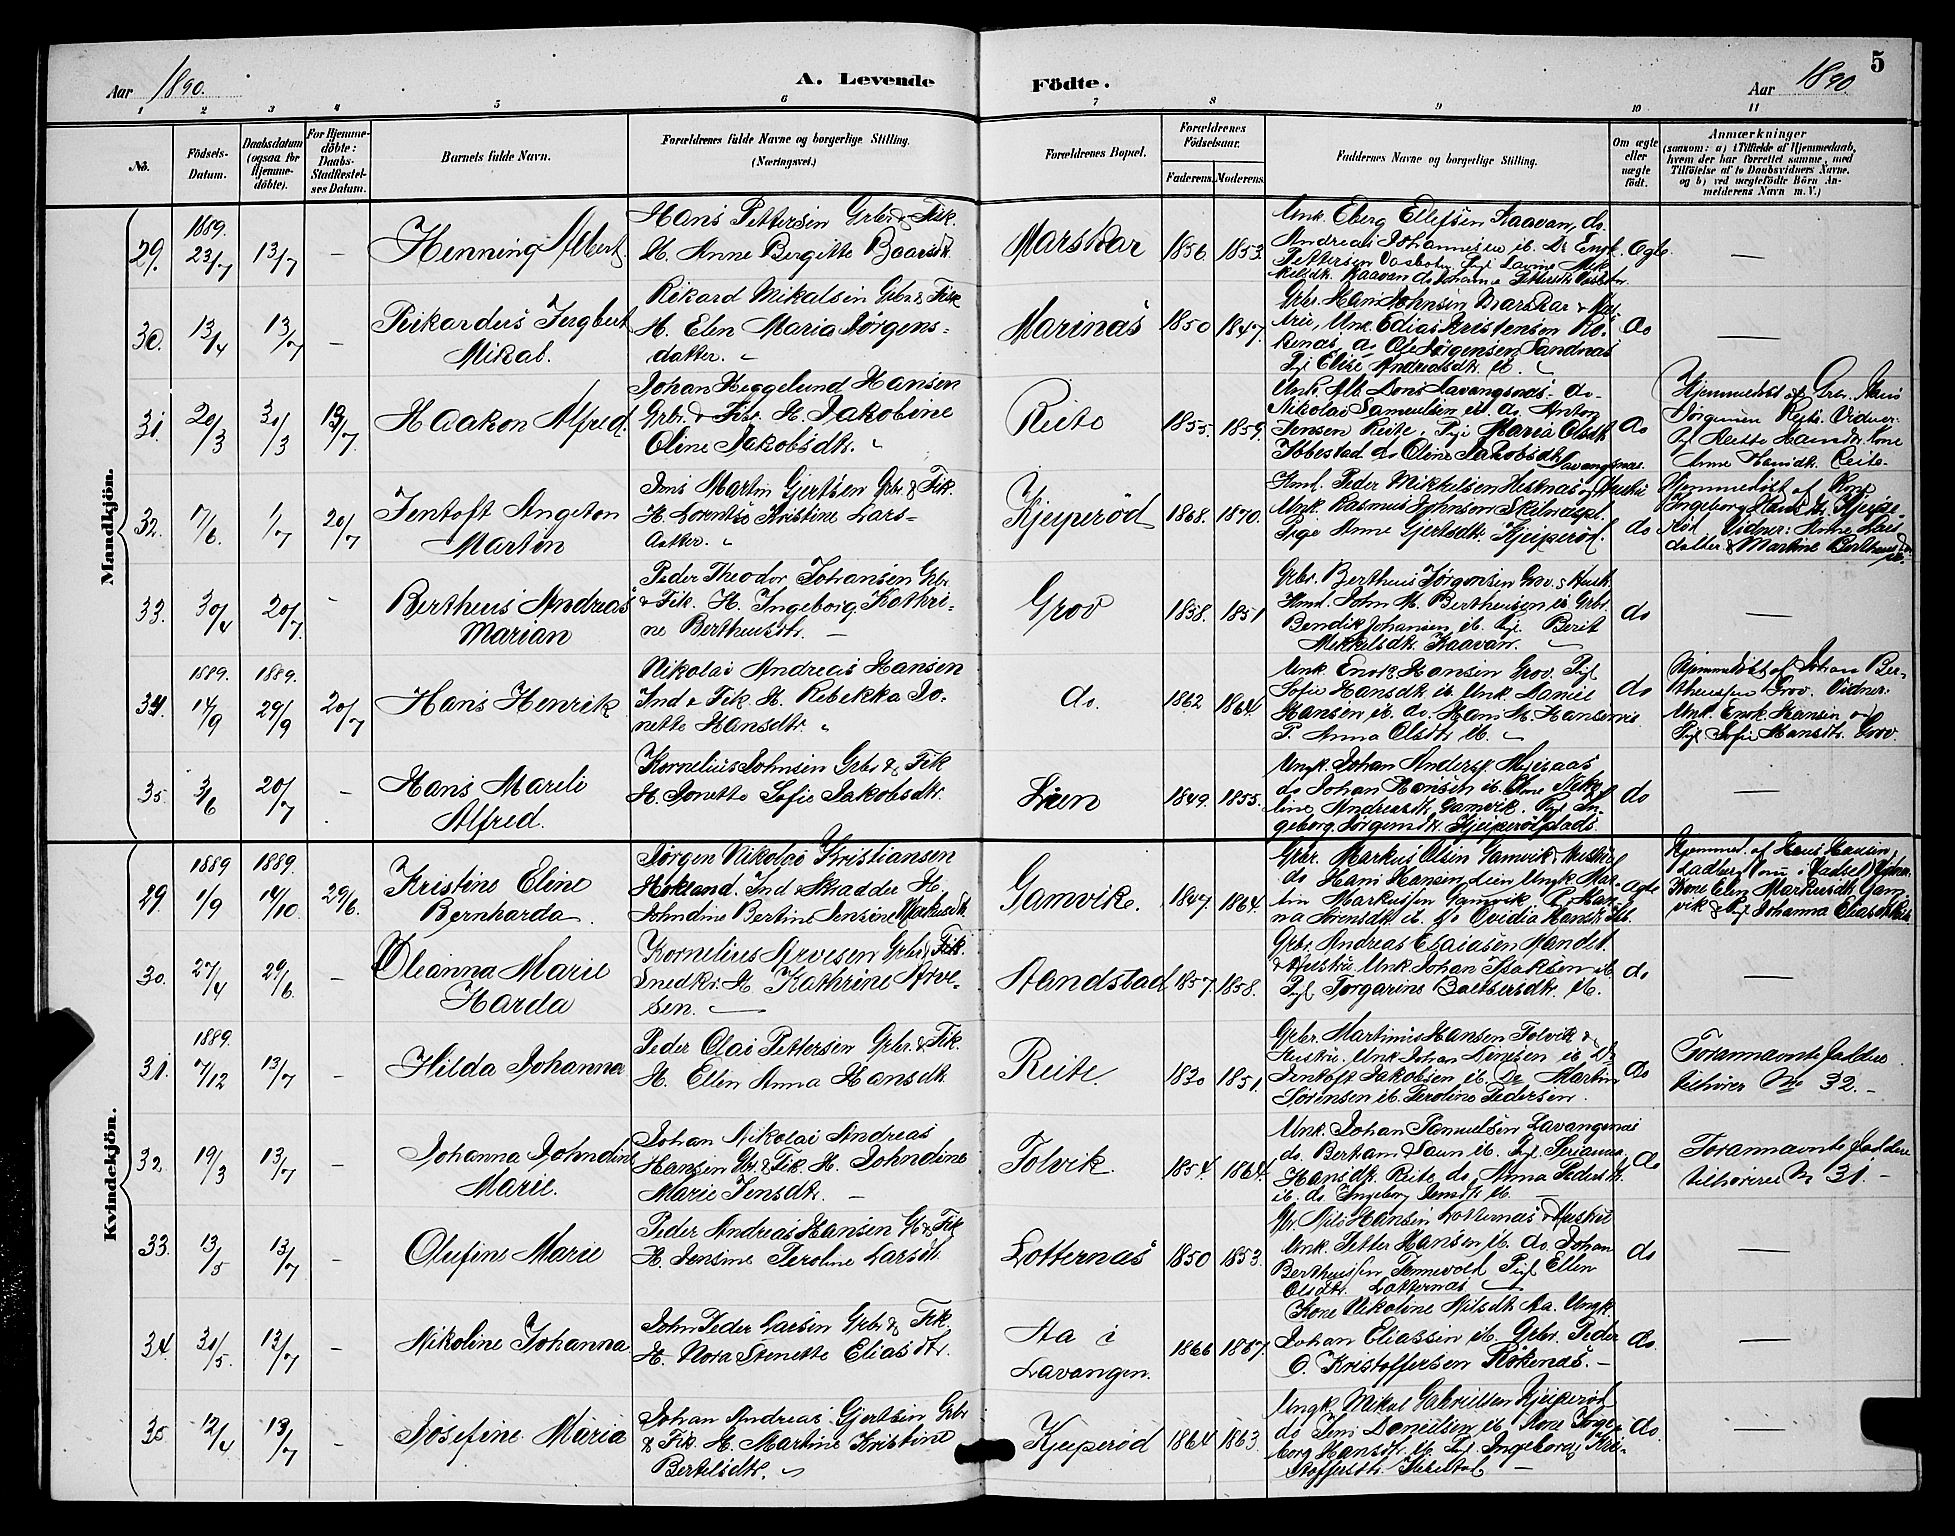 Aar 1890.
A. Levende
Födte.
Aar 1890
5
1 2 3 4 5 6 7 8 9 10 11
No.
Födsels-Datum.
Daabsdatum (ogsaa for Hjemmedöbte).
For Hjemmedöbte: Daabs-Stadfæstelses Datum.
Barnets fulde Navn.
Forældrenes fulde Navne og borgerlige Stilling.
(Næringsvei.)
Forældrenes Bopæl.
Forældrenes Födselsaar.
Faderens. Moderens.
Faddernes Navne og borgerlige Stilling.
Om ægte eller uægte födt.
Anmærkninger
(saasom: a) i Tilfælde af Hjemmedaab, hvem der har forrettet samme, med Tilföielse af to Daabsvidners Navne, og b) ved uægtefödte Börn Anmelderens Navn m. V.)
Mandkjön.
29. 1889. 23/7 13/7 — Henning Albert
Hans Pettersen Grbr. & Fisk.
H. Anne Bergitte Baarsdt.
Marskar 1856 1853.
Unk. Eberg Ellefsen Kaavan, do.
Andreas Johannesen ib. Do Enok
Ægte. —
30. 13/4 13/7 — Rikardus Ingbert
Mikal.
Rikard Mikalsen Grbr & Fisk
H. Elen Maria Jörgens-
datter.
Marinas 1850 1847.
Grbr. Hans Johnsen Marskar &
Unk. Edias Kristensen
do Ole Jörgensen Sandnas
Pige Elise Andreasdt. ib.
do —
31. 20/3 30/3 13/7 Haakon Alfred.
Johan Heggelund Hansen
Grbr. & Fisk. H. Jakobine
Oline Jakobsdtr.
Reite 1855. 1859.
Unk. Lavangsnas. do.
Nikolai Samuelsen ib. do. Anton
Jensen Reite, Pige Maria Olsdt
Ibbestad do Oline Jakobsdt.
Lavangsnas.
do
Hjemmedöbt af Grbr. Hans
Jörgensen Reite. Vidner:
Anne Hansdt. Reite.
32. 7/6 1/7 20/7 Jentoft Angeton
Martin
Jens Martin Gjertsen Grbr. & Fisk.
H. Lorentse Kristine Lars-
datter.
Kjeiperöd 1868. 1870.
Peder Mikkelsen og Hustru
Unk. Rasmus Johnsen
Pige Anne Gjertsdt. Kjeiperöd.
do
Hjemmedöbt af Kone
Ingeborg Hansdt. Kjeipe-
röd Vidner: Anne Lars
datter & Martine
33. 30/4 20/7 - Bertheus Andreas
Marian
Peder Theodor Johansen Grbr
& Fisk. H. Ingeborg Kathri-
ne Bertheusdtr. —
Grov 1858. 1851
Grbr. Bertheus Jörgensen Grov & Hust.
John M. Bertheusen ib. Grbr.
Bendik Johansen ib. Pige Berit
Mikkelsdt. Kaavan.
do —
34. 1889. 14/9 1889. 29/9 20/7 Hans Henrik
Nikolai Andreas Hansen
Ind & Fisk H. Rebekka Jo-
nette Hansdtr.
do. 1862 1864.
Unk. Enok Hansen Grov. Pige
Sofie Hansdt. ib. Unk. Daniel
Hansen ib. do. Hans M. Hansen ib
P. Anna Olsdtr ib.
do
Hjemmedöbt af Johan Ber-
theussen Grov. Vidner:
Unk. Enok Hansen og
Pige Sofie Hansdt. Grov.
35 3/6 20/7 — Hans Mareli
Alfred.
Kornelius Johnsen Grbr & Fisk
H. Jonette Sofie Jakobsdtr.
Lien 1849. 1855.
Ungk. Johan Anders.
do Johan Hansen ib.
line Andreasdt. Gamvik. Pige In-
geborg Jörgensdt. Kjeiperödplads.
do
Kvindekjön.
29. 1889 1/9 1889. 14/10. 29/6. Kristine Eline
Bernharda.
Jörgen Nikolai Kristiansen
Hokland. Ind & Skrædder H.
Johndine Bertine Jensine Markusdt.
Gamvik. 1847. 1864.
Grbr. Markus Olsen Gamvik & Hustru
do Hans Hansen Lien Ungk. Mar-
tin Markussen Gamvik P.
ib. do Ovidia Hansdt ib.
ægte
Hjemmed. af Hans Hansen
Kone Elen Markusdt. Gam-
vik & Pige Johanna
30. 27/4 29/6. — Oleanna Marie
Harda
Kornelius Arvesen Grbr & Fisk.
Snedkr. H. Kathrine Arve-
sen.
Aandstad 1857. 1858.
Grbr. Andreas Esaiasen
& Hustru Unk. Johan Isaksen ib.
Pige Torgarine Baltsersdtr. ib.
do —
31. 1889. 7/12 13/7 - Hilda Johanna
Peder Olai Pettersen Grbr. & Fisk.
H. Ellen Anna Hansdt.
Reite. 1830 1851.
Grbr. Martinus Hansen Tolvik &
Hustru. Unk. Johan ib Do
Jentoft Jakobsen ib. Do Martin
Sörensen ib. Peroline Pedersen.
do
Forannævnte Faddere
tilhörer No 32. -
32. 19/3 13/7 - Johanna Johndine
Marie.
Johan Nikolai Andreas
Hansen Gbr. & Fisk. H. Johndine
Marie Jensdt. —
Tolvik. 1854. 1864.
Unk. Johan Samuelsen Lavangsnas
do. Bertram ib. Pige
Hansdt. Reite do. Anna Pedersdt.
ib. do Ingeborg Jensdt ib. —
do
Forannævnte Faddere
tilhörer No 31. -
33. 13/5 13/7 — Olufine Marie
Peder Andreas Hansen G. & Fisk
H. Jensine Peroline Larsdt.
Lotternas 1850 1853.
Gbr. Nils Hansen Lotternas & Hustru
Unk. Petter Hansen ib. do. Johan
Bertheussen Tennevold Pige Ellen
Olsdtr. Lotternas
do —
34. 30/5. 13/7 — Nikoline Johanna
John Peder Larsen Grbr & Fisk.
H. Nora Stenette Eliasdtr.
Aa i
Lavangen. 1866 1867.
Kone Nikoline Nilsdt Aa. Ungk.
Johan Eliassen ib. Grbr. Peder
O. Kristoffersen Rökenas. —
do. —
35 12/4 13/7 - Josefine Maria
Johan Andreas Gjertsen Grbr
& Fisk. H. Martine Kristine
Bertelsdtr.
Kjeiperöd 1864 1863.
Ungk. Mikal Gabrielsen Kjeiperöd
do Jens Danielsen ib. Kone Inge-
borg Hansdt. ib. Pige Ingeborg Kri-
stoffersdtr.
do. —